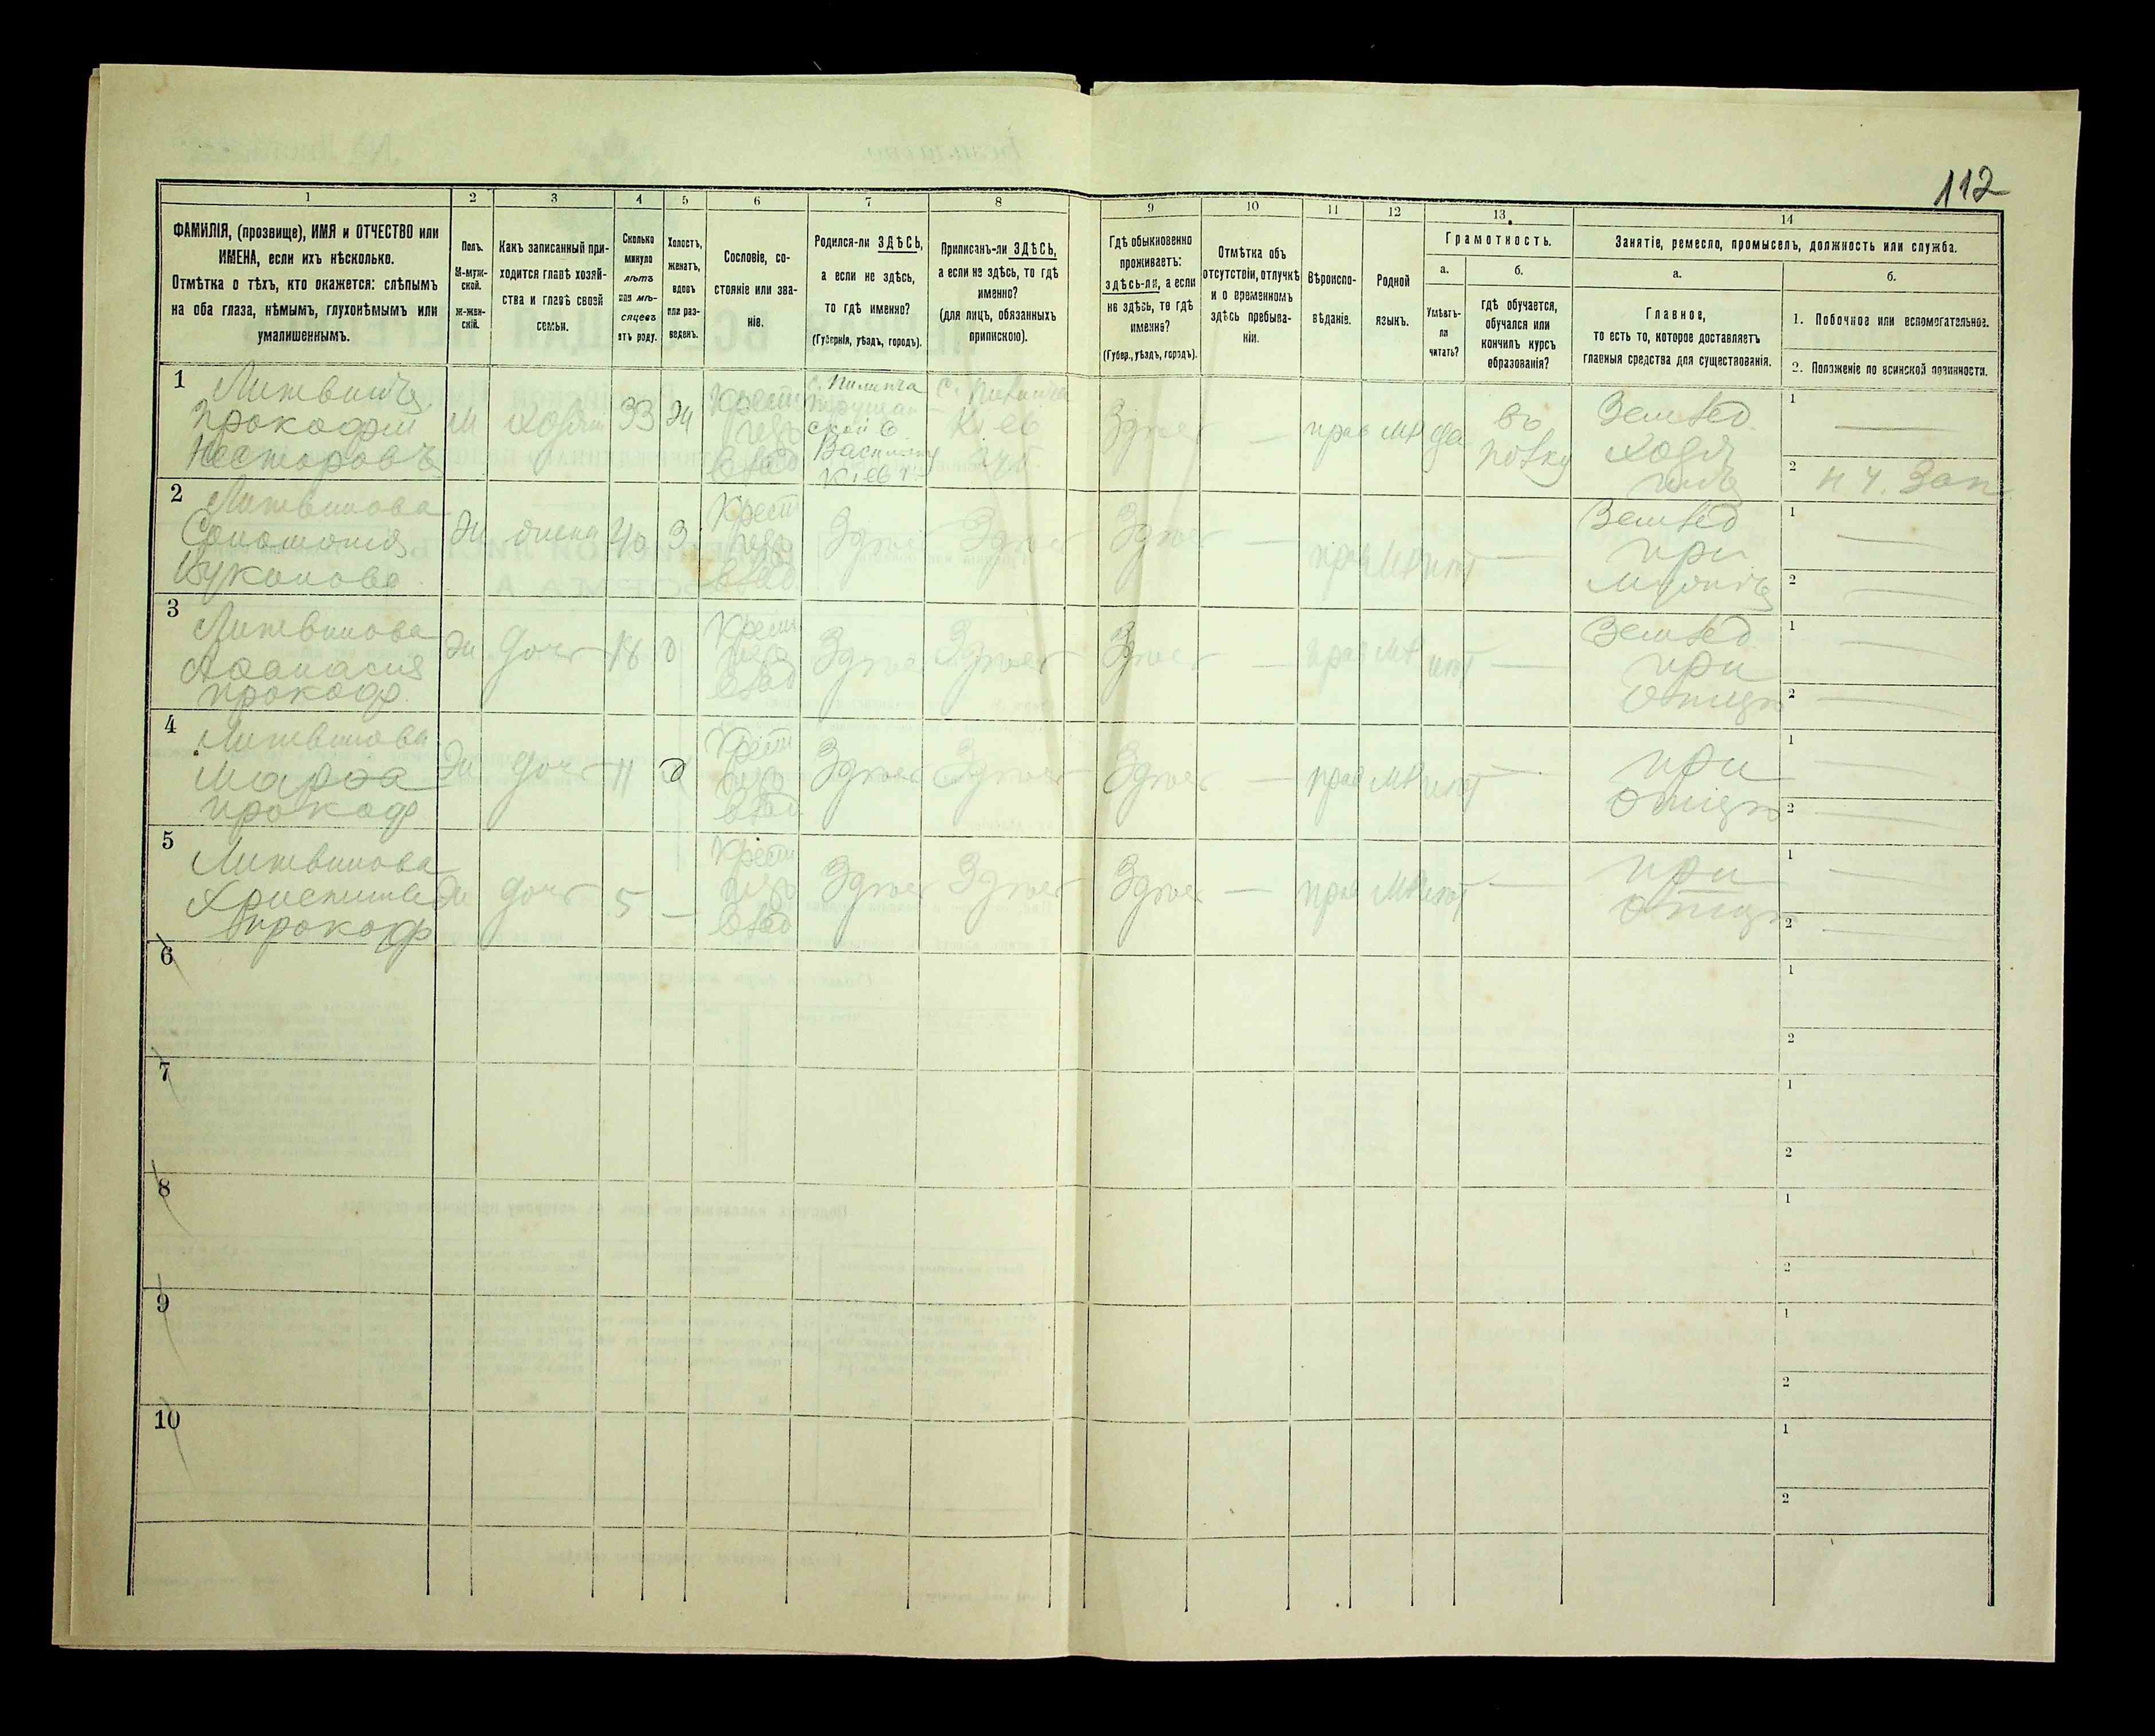 112
1
2
3
4
5
6
7
8
9
10
11
12
13.
14
ФАМИЛІЯ, (прозвище), ИМЯ и ОТЧЕСТВО или
ИМЕНА, если ихъ нѣсколько.
Отмѣтка о тѣхъ, кто окажется: слѣпымъ
на оба глаза, нѣмымъ, глухонѣмымъ или
умалишеннымъ.
Полъ.
М-муж-
ской.
Ж-жен-
скій.
Какъ записанный при-
ходится главѣ хозяй-
ства и главѣ своей
семьи.
Сколько
минуло
лѣтъ
или мѣ-
сяцевъ
отъ роду.
Холостъ,
женатъ,
вдовъ
или раз-
веденъ.
Сословіе, со-
стояніе или зва-
ніе.
Родился-ли ЗДѢСЬ,
а если не здѣсь,
то гдѣ именно?
(Губернія, уѣздъ, городъ).
Приписанъ-ли ЗДѢСЬ,
а если не здѣсь, то гдѣ
именно?
(для лицъ, обязанныхъ
припискою).
Гдѣ обыкновенно
проживаетъ:
здѣсь-ли, а если
не здѣсь, то гдѣ
именно?
(Губер., уѣздъ, городъ).
Отмѣтка объ
отсутствіи, отлучкѣ
и о временномъ
здѣсь пребыва-
ніи.
Вѣроиспо-
вѣданіе.
Родной
языкъ.
Грамотность.
а.
Умѣетъ-
ли
читать?
б.
гдѣ обучается,
обучался или
кончилъ курсъ
образованія?
Занятіе, ремесло, промыселъ, должность или служба.
а.
Главное,
то есть то, которое доставляетъ
главныя средства для существованія.
б.
1. Побочное или вспомогательное.
2. Положеніе по воинской повинности.
1
Литвинъ
Прокофій
Несторовъ
М
хозяин
33
Ж
Крест
влад
Васильк
Кіев г.
Кіев
Здѣсь
—
прав
МР
да
во
полку
Землед
хозя
1
—
2 н ч. Зап
2
Литвинова
Соломонія
Ж
жена
40
З
Крест
влад
Здѣсь
Здѣсь
Здѣсь
—
прав
МР
нѣт
—
Землед
при
мужѣ
1 —
2 —
3
Литвинова
Афанасия
Прокоф.
Ж
дочь
18
д
Крест
влад
Здѣсь
Здѣсь
Здѣсь
—
прав
МР
нѣт
—
Землед
при
отцѣ
1 —
2 —
4
Литвинова
Марфа
Прокоф
Ж
дочь
11
д
Крест
влад
Здѣсь
Здѣсь
Здѣсь
—
прав
МР
нѣт
—
при
отцѣ
1 —
2 —
5
Литвинова
Христина
Прокоф
Ж
дочь
5
—
Крест
влад
Здѣсь
Здѣсь
Здѣсь
—
прав
МР
нѣт
—
при
отцѣ
1 —
2 —
6
1
2
7
1
2
8
1
2
9
1
2
10
1
2